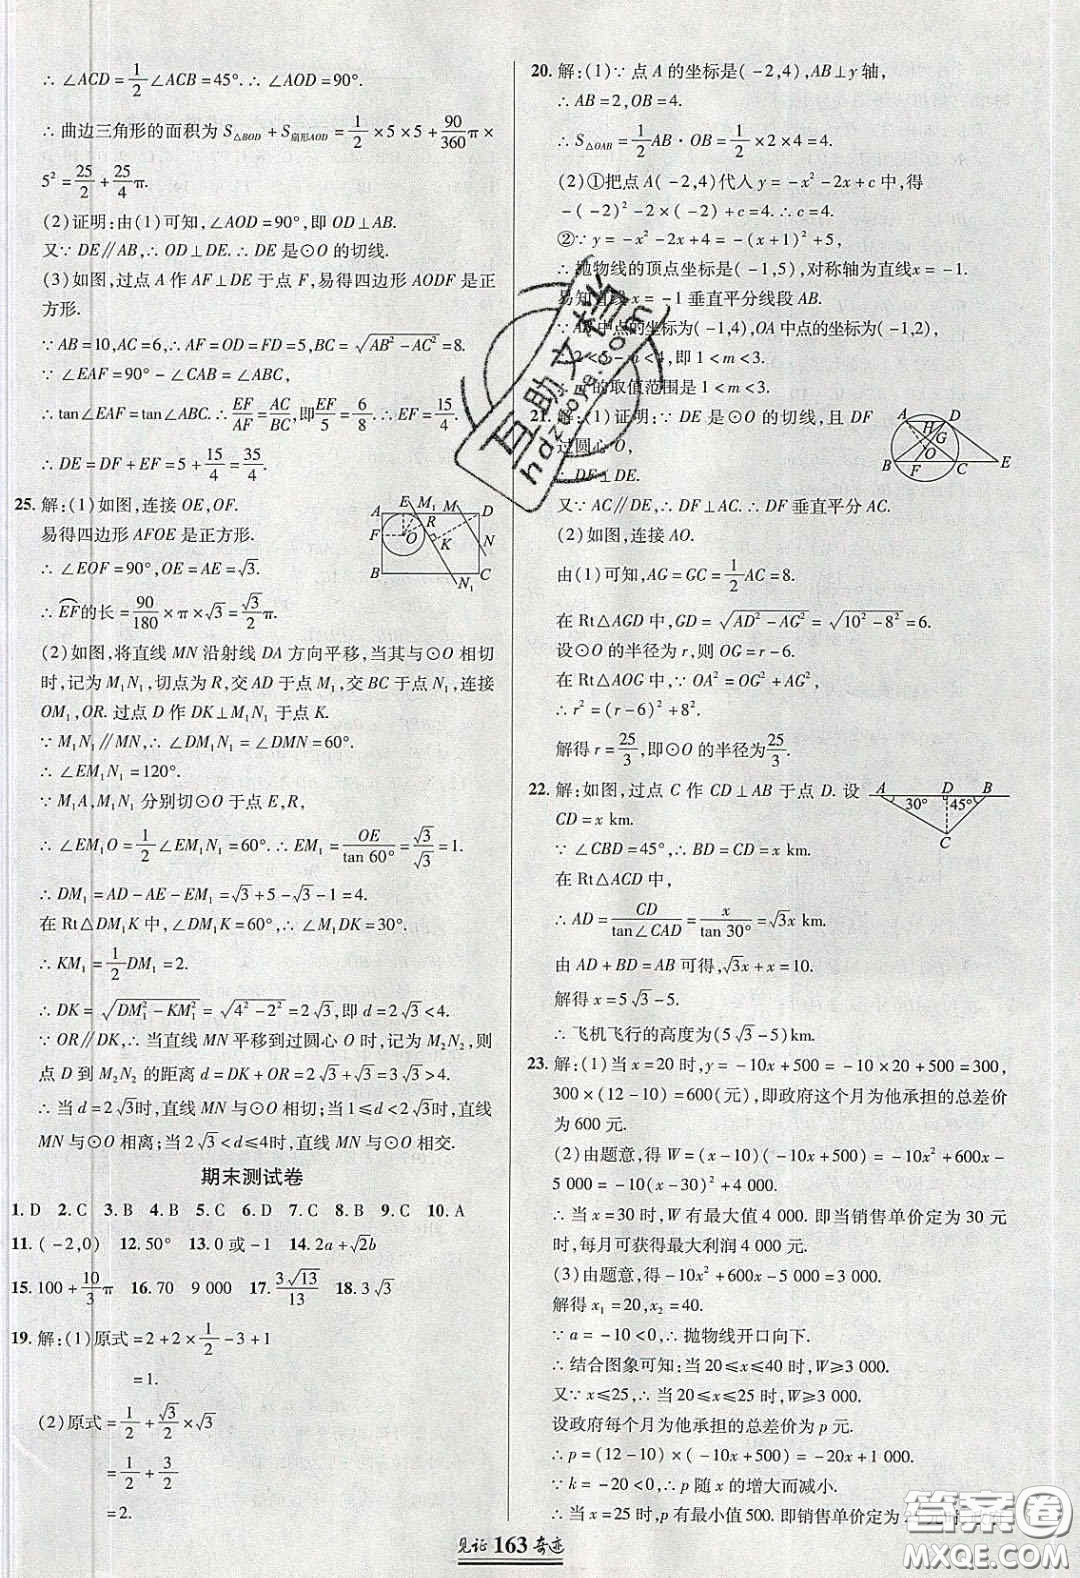 ∴ ∠ACD = 1/2 ∠ACB = 45°. ∴ ∠AOD = 90°.
∴ 曲边三角形的面积为 S△BOD + S扇形AOD = 1/2 × 5 × 5 + 90/360 π ×
5² = 25/2 + 25/4 π.
(2)证明:由(1)可知,∠AOD = 90°,即 OD⊥AB.
又∵ DE∥AB,∴ OD⊥DE. ∴ DE 是⊙O 的切线.
(3)如图,过点 A 作 AF⊥DE 于点 F,易得四边形 AODF 是正
方形.
∵ AB = 10, AC = 6,∴ AF = OD = FD = 5, BC = √(AB² − AC²) = 8.
∵ ∠EAF = 90° − ∠CAB = ∠ABC,
∴ tan∠EAF = tan∠ABC. ∴ EF/AF = AC/BC,即 EF/5 = 6/8. ∴ EF = 15/4.
∴ DE = DF + EF = 5 + 15/4 = 35/4.
25. 解:(1)如图,连接 OE,OF.
易得四边形 AFOE 是正方形.
∴ ∠EOF = 90°, OE = AE = √3.
∴ EF⌒的长 = 90/180 × π × √3 = √3/2 π.
(2)如图,将直线 MN 沿射线 DA 方向平移,当其与⊙O 相切
时,记为 M₁N₁,切点为 R,交 AD 于点 M₁,交 BC 于点 N₁,连接
OM₁,OR. 过点 D 作 DK⊥M₁N₁ 于点 K.
∵ M₁N₁∥MN,∴ ∠DM₁N₁ = ∠DMN = 60°.
∴ ∠EM₁N₁ = 120°.
∵ M₁A,M₁N₁ 分别切⊙O 于点 E,R,
∴ ∠EM₁O = 1/2 ∠EM₁N₁ = 60°. ∴ EM₁ = OE/tan 60° = √3/√3 = 1.
∴ DM₁ = AD − AE − EM₁ = √3 + 5 − √3 − 1 = 4.
在 Rt△DM₁K 中,∠DM₁K = 60°,∴ ∠M₁DK = 30°.
∴ KM₁ = 1/2 DM₁ = 2.
∴ DK = √(DM₁² − KM₁²) = √(4² − 2²) = 2√3,即 d = 2√3 < 4.
∵ OR∥DK,∴ 当直线 MN 平移到过圆心 O 时,记为 M₂N₂,则
点 D 到 M₂N₂ 的距离 d = DK + OR = 2√3 + √3 = 3√3 > 4.
∴ 当 d = 2√3时,直线 MN 与⊙O 相切;当 1≤d<2√3时,直线
MN 与⊙O 相离;当 2√3<d≤4时,直线 MN 与⊙O 相交.
期末测试卷
1. D 2. C 3. B 4. B 5. C 6. D 7. C 8. B 9. C 10. A
11. (−2,0) 12. 50° 13. 0 或 −1 14. 2a + √2b
15. 100 + 10/3 π 16. 70 9 000 17. 3√13/13 18. 3√3
19. 解:(1)原式 = 2 + 2 × 1/2 − 3 + 1
= 1.
(2)原式 = 1/2 + √3/2 × √3
= 1/2 + 3/2
= 2.
20. 解:(1)∵ 点 A 的坐标是(−2,4),AB⊥y 轴,
∴ AB = 2,OB = 4.
∴ S△OAB = 1/2 AB · OB = 1/2 × 2 × 4 = 4.
(2)①把点 A(−2,4)代入 y = −x² − 2x + c 中,得
−(−2)² − 2 × (−2) + c = 4. ∴ c = 4.
②∵ y = −x² − 2x + 4 = −(x + 1)² + 5,
∴ 抛物线的顶点坐标是(−1,5),对称轴为直线x = −1.
易知直线 x = −1 垂直平分线段 AB.
∵ AB 中点的坐标为(−1,4),OA 中点的坐标为(−1,2),
∴ 2 < 5 − m < 4,即 1 < m < 3.
∴ m 的取值范围是 1 < m < 3.
21. 解:(1)证明:∵ DE 是⊙O 的切线,且 DF
过圆心 O,
∴ DF⊥DE.
又∵ AC∥DE,∴ DF⊥AC. ∴ DF 垂直平分 AC.
(2)如图,连接 AO.
由(1)可知,AG = GC = 1/2 AC = 8.
在 Rt△AGD 中,GD = √(AD² − AG²) = √(10² − 8²) = 6.
设⊙O 的半径为 r,则 OG = r − 6.
在 Rt△AOG 中,∵ OA² = OG² + AG²,
∴ r² = (r − 6)² + 8².
解得 r = 25/3,即⊙O 的半径为 25/3.
22. 解:如图,过点 C 作 CD⊥AB 于点 D. 设
CD = x km.
∵ ∠CBD = 45°,∴ BD = CD = x km.
在 Rt△ACD 中,
∴ AD = CD/tan∠CAD = x/tan 30° = √3x km.
由 AD + BD = AB 可得,√3x + x = 10.
解得 x = 5√3 − 5.
∴ 飞机飞行的高度为(5√3 − 5)km.
23. 解:(1)当 x = 20 时,y = −10x + 500 = −10 × 20 + 500 = 300,
300 × (12 − 10) = 600(元),即政府这个月为他承担的总差价
为 600 元.
(2)由题意,得 W = (x − 10)(−10x + 500) = −10x² + 600x −
5 000 = −10(x − 30)² + 4 000.
∴ 当 x = 30 时,W 有最大值 4 000. 即当销售单价定为 30 元
时,每月可获得最大利润 4 000 元.
(3)由题意,得 −10x² + 600x − 5 000 = 3 000.
解得 x₁ = 20,x₂ = 40.
∵ a = −10 < 0,∴ 抛物线开口向下.
∴ 结合图象可知:当 20≤x≤40 时,W≥3 000.
又∵ x≤25,∴ 当 20≤x≤25 时,W≥3 000.
设政府每个月为他承担的总差价为 p 元.
∴ p = (12 − 10) × (−10x + 500) = −20x + 1 000.
∵ k = −20 < 0,∴ p 随 x 的增大而减小.
∴ 当 x = 25 时,p 有最小值 500. 即销售单价定为
见证 163 奇迹
互助文档
hdzuoye.com
答案圈
MXQE.COM